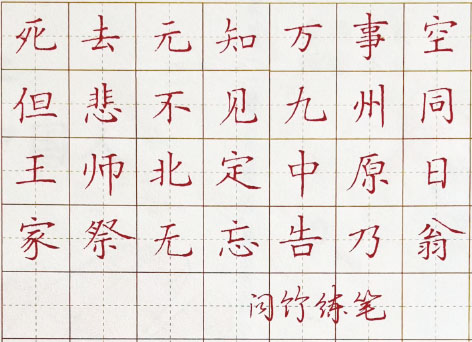 死去元知万事空
但悲不见九州同
王师北定中原日
家祭无忘告乃翁
问竹练笔